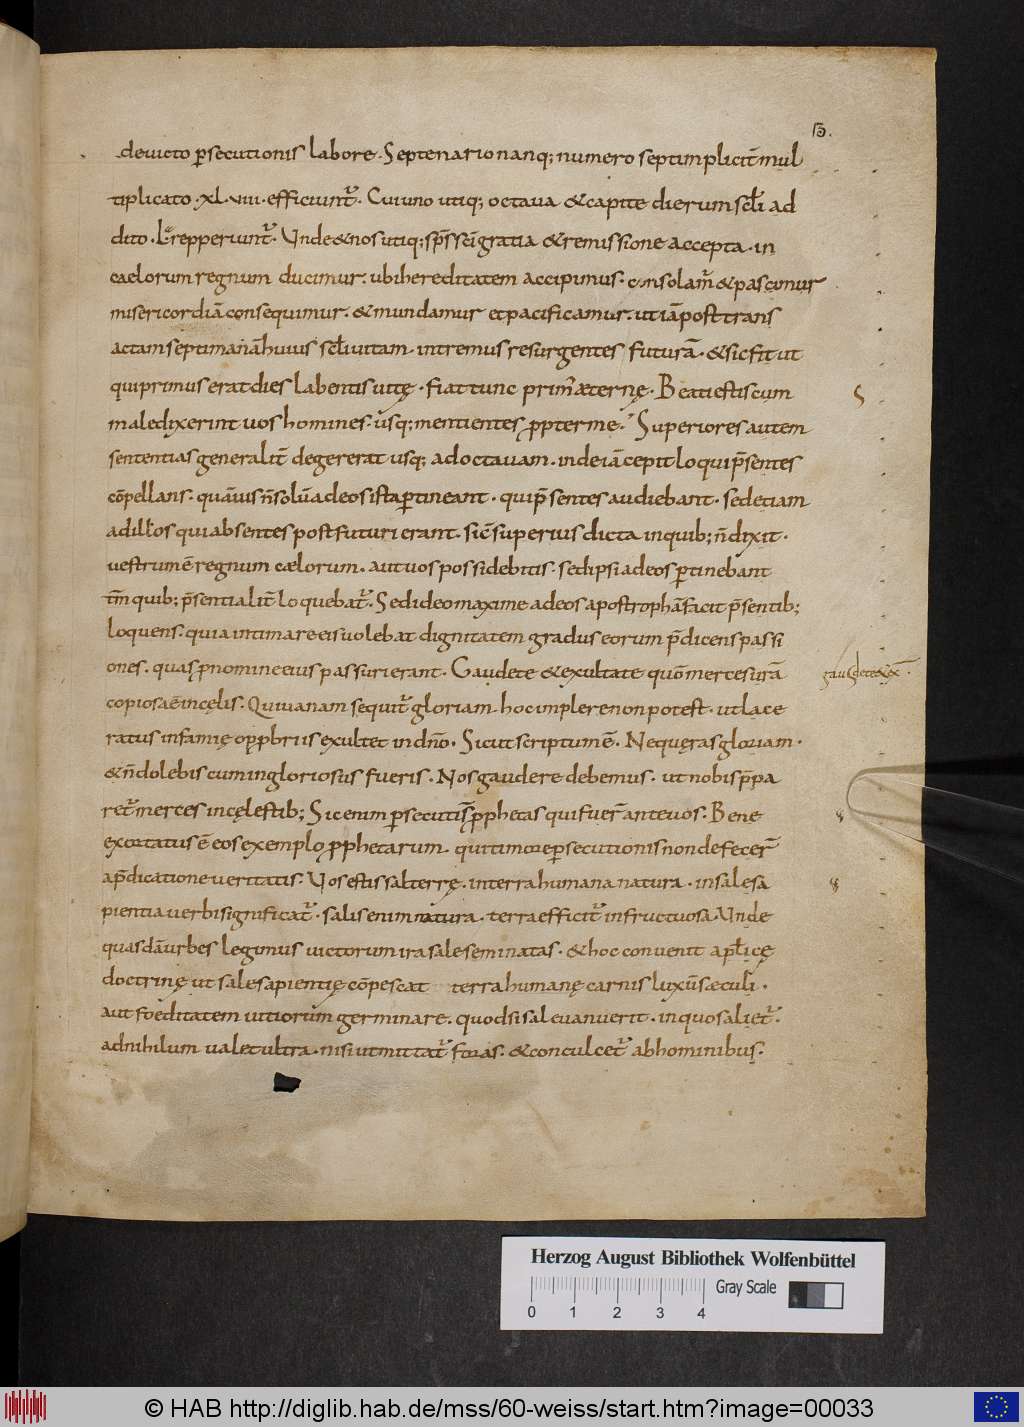 deuicto p̱secutionis labore. Septenario nanq; numero septimpliciť mul
tiplicato. xl. viiii. efficiunť. Cui uno utiq; octaua &capite dierum scłi ad
dito. L. repperiunť. Unde & nos utiq; sp̄s sc̄i gratia &remissione accepta. in
caelorum regnum ducimur. ubi hereditatem accipimus. consolam̃ & pascimur
misericordiā consequimur. & mundamur et pacificamur. ut iā post trans
actam septimanā huius scłi uitam. intremus resurgentes futurā. & sic fit ut
qui primus erat dies labentis uitę. fiat tunc prim' æternę. Beati estis cum
maledixerint uos homines. usq; mentientes ꝓpter me. Superiores autem
sententias generaliť degererat usq; ad octauam. inde iā cepit loqui p̄sentes
cōpellans. quāuis n̄ solū ad eos ista p̱tineant. qui p̄sentes audiebant. sed etiam
ad illos qui absentes post futuri erant. sic̄ superius dicta in quib; n̄ dixit.
uestrum ē regnum cælorum. aut uos possidebitis. sed ipsi ad eos p̱tinebant
tm̄ quib; p̄sentialiť loquebať. Sed ideo maxime ad eos apostrophā facit p̄sentib;
loquens. quia intimare eis uolebat dignitatem gradus eorum p̄dicens passi
ones. quas ꝓ nomine eius passuri erant. Gaudete & exultate quōm merces urā
copiosa ē in cęlis. Qui uanam sequiť gloriam. hoc implere non potest. ut lace
ratus infamię opprobriis exultet in dn̄o. Sicut scriptum ē. Ne quęras gloriam.
& n̄ dolebis cum ingloriosus fueris. Nos gaudere debemus. ut nobis p̄pa
reť merces in cęlestib; Sic enim p̱secuti s̄ ꝓphetas qui fuer̄ ante uos. Bene
exortatus ē eos exemplo ꝓphetarum. qui timore p̱secutionis non defecer̄
a p̄dicatione ueritatis. Vos estis sal terrę. in terra humana natura. in sale sa
pientia uerbi significať. salis enim natura. terra efficiť infructuosa. Unde
quasdā urbes legimus uictorum ira sale seminatas. & hoc conuenit apłicę
doctrinę ut sale sapientię cōpescat terra humanę carnis luxū sæculi.
aut foeditatem uitiorum germinare. quod si sal euanuerit. in quo salieť.
ad nihilum ualet ultra. nisi ut mittať foras. & conculceť ab hominibus.
Herzog August Bibliothek Wolfenbüttel
Gray Scale
0 1 2 3 4
© HAB http://diglib.hab.de/mss/60-weiss/start.htm?image=00033